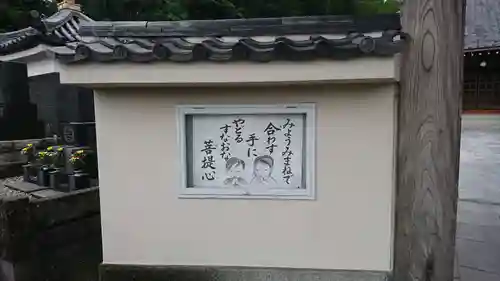 みようみまねで
合わす
手に
やどる
すなおな
菩提心